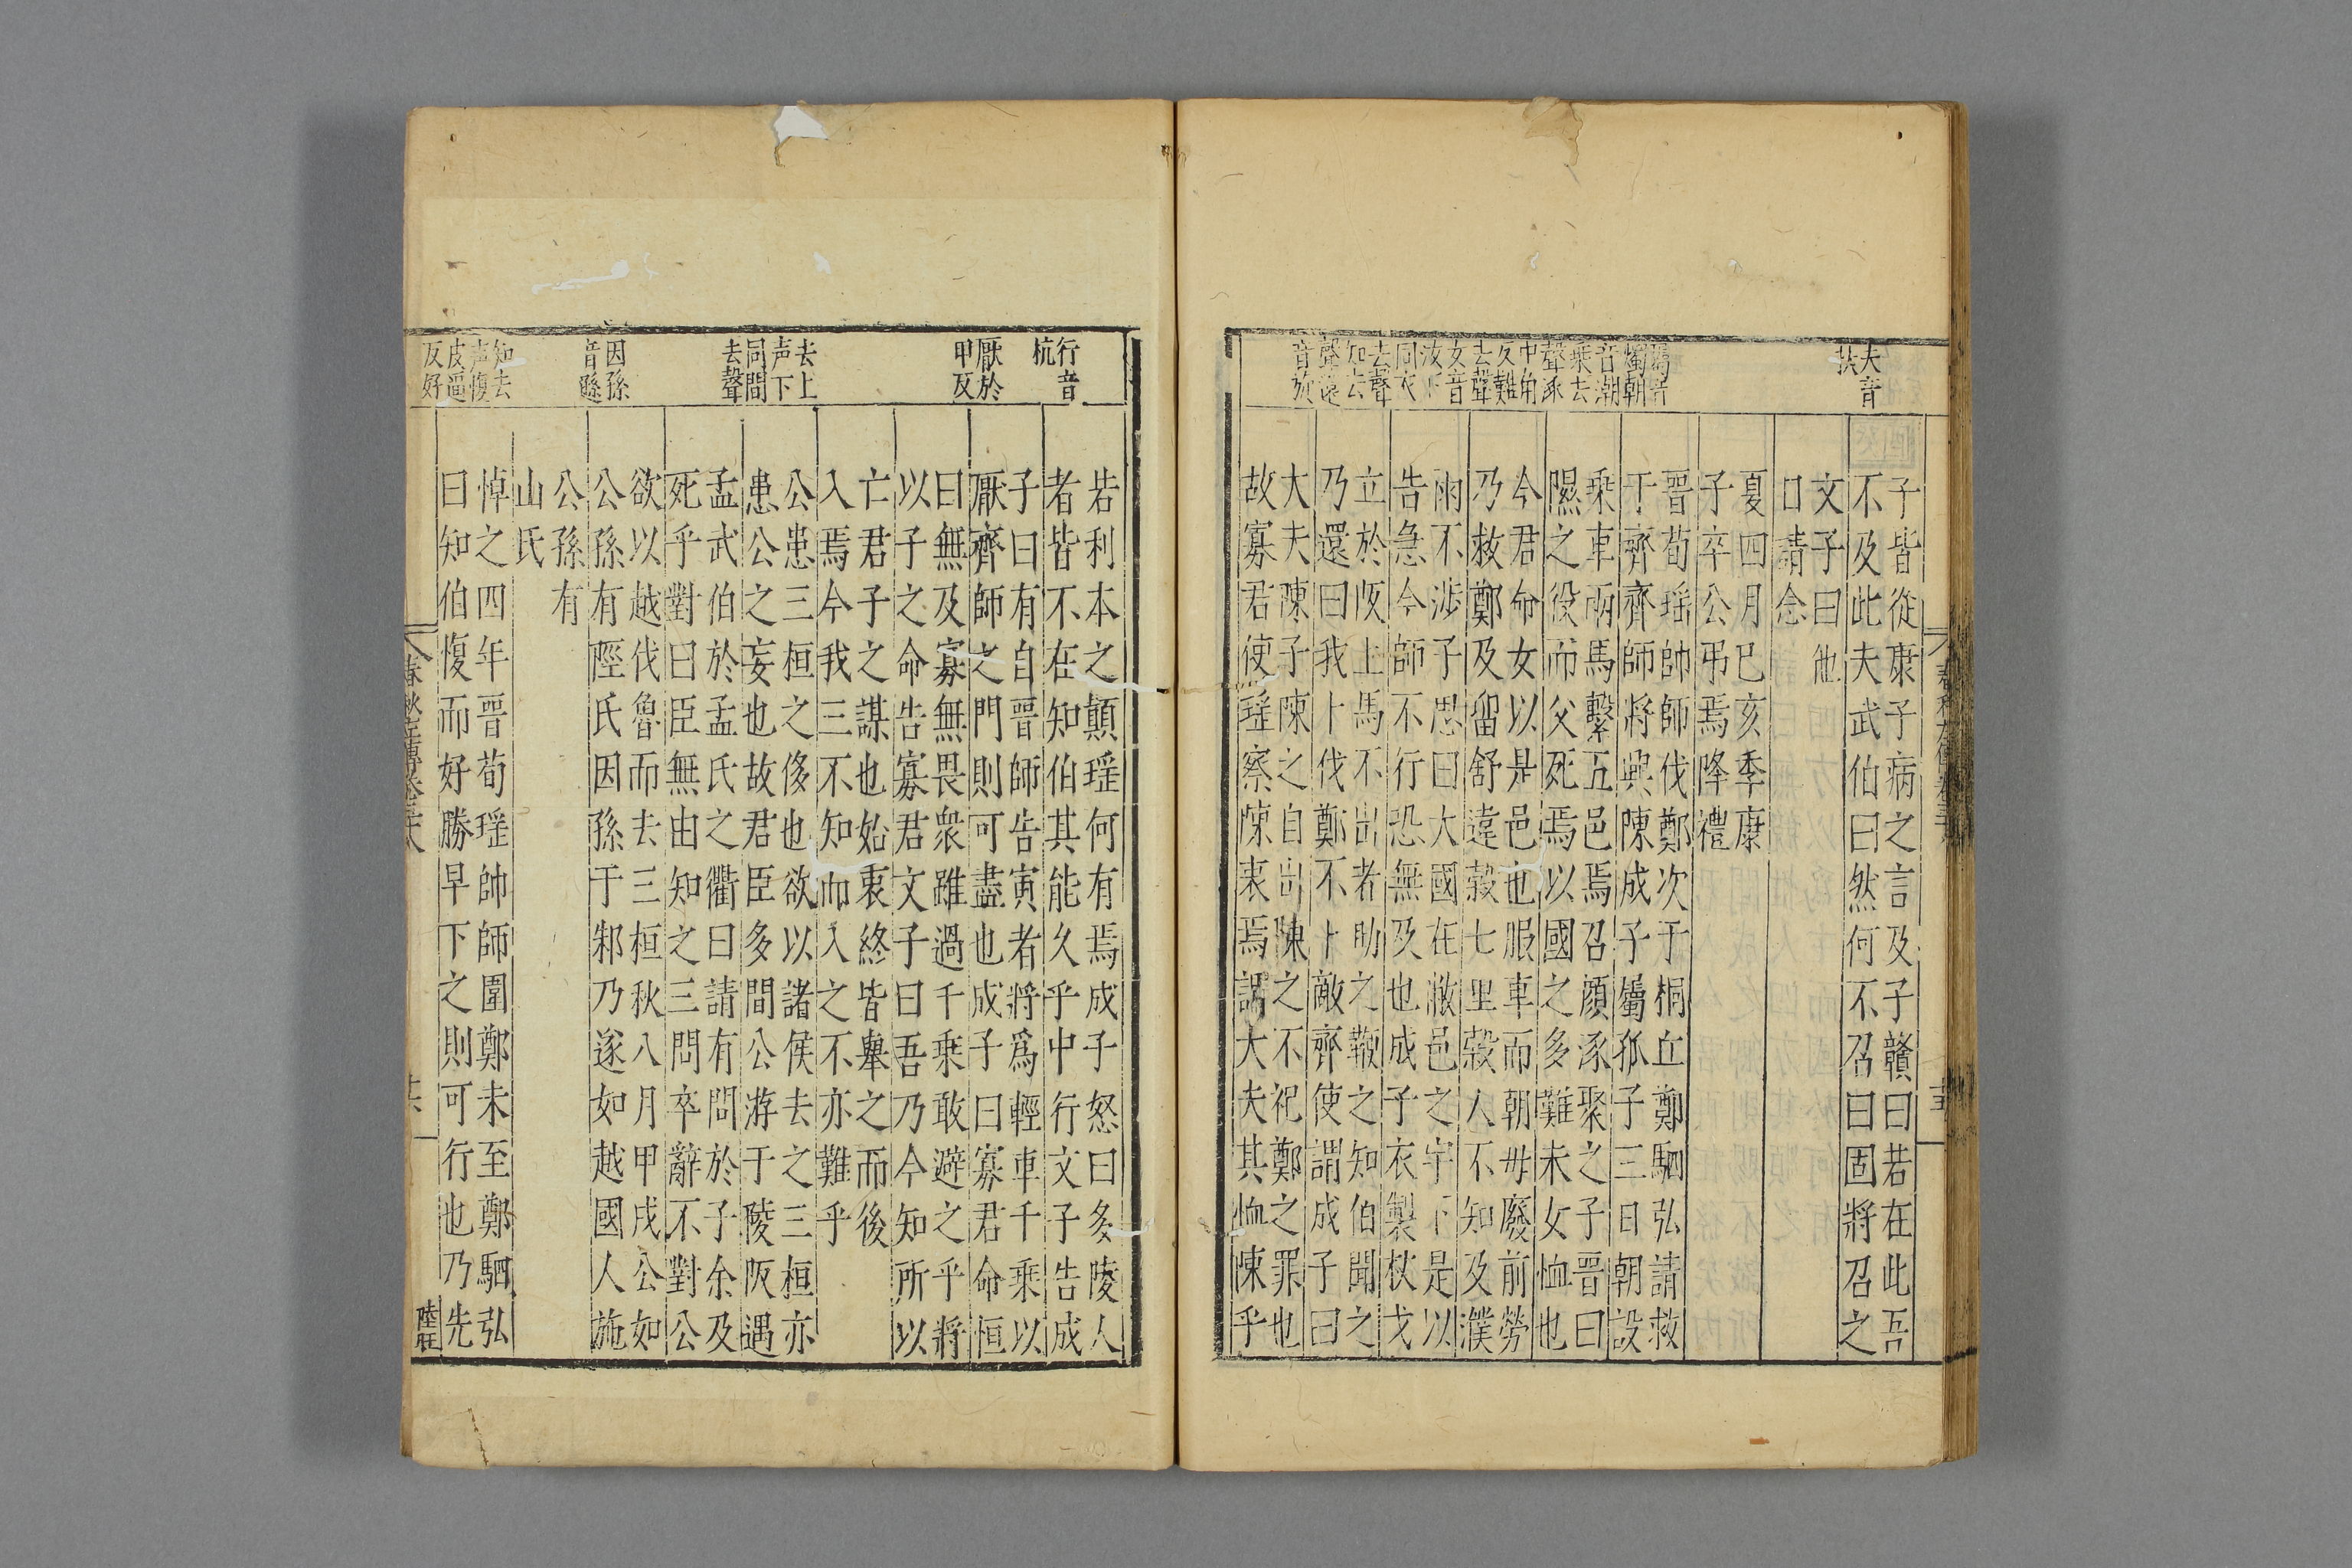 夫音
扶
屬音
燭朝
音潮
乗去
聲涿
中角
反難
去聲
女音
汝下
同衣
去聲
知去
子皆從康子病之言及子贛曰若在此吾
不及此夫武伯曰然何不召曰固將召之
文子曰他
日請念
夏四月已亥季康
子卒公弔焉降禮
晉荀瑶帥師伐鄭次于桐丘鄭駟弘請救
于齊齊師將興陳成子屬孤子三日朝設
乗車兩馬繫五邑焉召顔涿聚之子晉曰
隰之役而父死焉以國之多難未女恤也
今君命女以是邑也服車而朝毋廢前勞
乃救鄭及留舒違榖七里榖人不知及濮
雨不涉子思曰大國在敝邑之宇下是以
告急今師不行恐無及也成子衣製杖戈
立於阪上馬不出者助之鞭之知伯聞之
乃還曰我卜伐鄭不卜敵齊使謂成子曰
大夫陳子陳之自出陳之不祀鄭之罪也
故寡君使瑶察陳衷焉謂大夫其恤陳乎
行音
杭
厭於
甲反
去上
声下
同間
去聲
因孫
音遜
知去
声愎
皮逼
反好
若利本之顛瑶何有焉成子怒曰多陵人
者皆不在知伯其能久乎中行文子告成
子曰有自晉師告寅者將爲輕車千乗以
厭齊師之門則可盡也成子曰寡君命恒
曰無及寡無畏衆雖過千乗敢避之乎將
以子之命告寡君文子曰吾乃今知所以
亡君子之謀也始衷終皆舉之而後
入焉今我三不知而入之不亦難乎
公患三桓之侈也欲以諸侯去之三桓亦
患公之妄也故君臣多間公游于陵阪遇
孟武伯於孟氏之衢曰請有問於子余及
死乎對曰臣無由知之三問卒辭不對公
欲以越伐魯而去三桓秋八月甲戌公如
公孫有陘氏因孫于邾乃遂如越國人施
公孫有
山氏
悼之四年晉荀瑶帥師圍鄭未至鄭駟弘
曰知伯愎而好勝早下之則可行也乃先